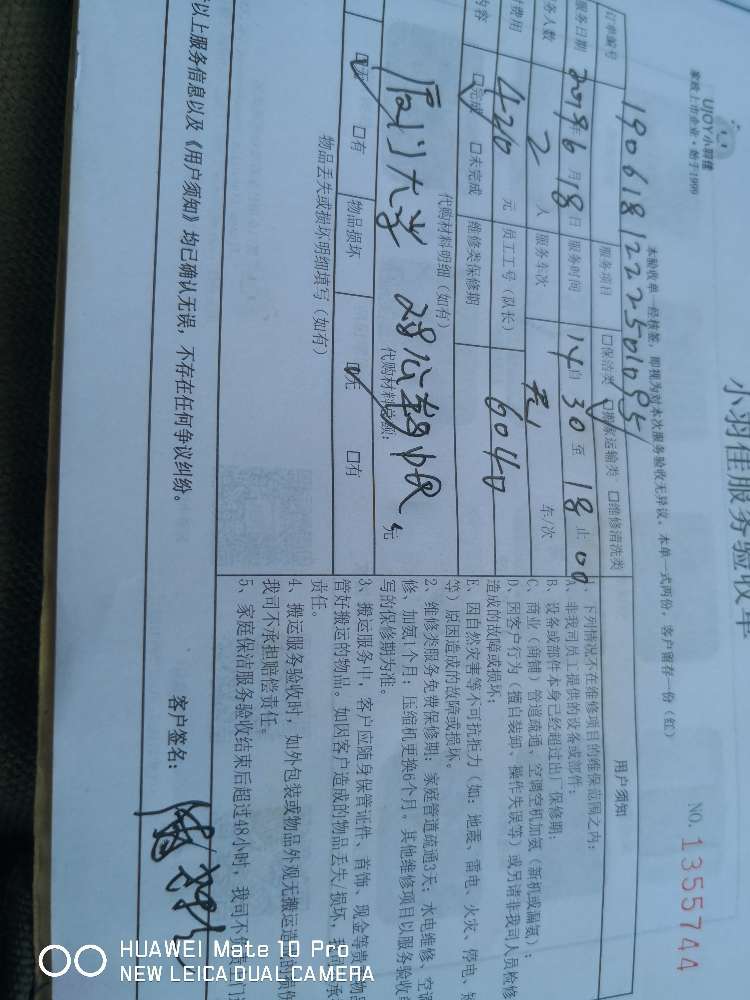 小羽佳服务验收单
UJOY小羽佳
家政上市企业·始于1999
NO. 1355744
本验收单一经核签，即视为对本次服务验收无异议。本单一式两份，客户留存一份（红）
订单编号 190618122250109
服务项目 □保洁类 □搬家运输类 □维修清洗类
服务日期 2019年6月18日 服务时间 14自30至18止00
务人数 2人 服务车次 车/次
费用 420元 员工工号（队长） 6040
内容 □完成 □未完成 维修类保修期
代购材料明细（如有）
厦门大学
代购材料总额： 元
□无 □有 物品损坏 □无 □有
物品丢失或损坏明细填写（如有）
用户须知
1、下列情况不在维修项目的维保范围之内：
A、非我司员工提供的设备或部件；
B、设备或部件本身已经超过出厂保修期；
C、商业（商铺）管道疏通、空调空机加氨（新机或漏氨）；
D、因客户行为（擅自装卸、操作失误等）或另请非我司人员检修
造成的故障或损坏；
E、因自然灾害等不可抗拒力（如：地震、雷电、火灾、停电、
等）原因造成的故障或损坏。
2、维修类服务免费保修期：家庭管道疏通3天；水电维修、空调
修、加氨1个月；压缩机更换6个月。其他维修项目以服务验收
写的保修期为准。
3、搬运服务中，客户应随身保管证件、首饰、现金等贵 物品
管好搬运的物品。如因客户造成的物品丢失/损坏，我 承
责任。
4、搬运服务验收时，如外包装或物品外观无搬运造 的损
我司不承担赔偿责任。
5、家庭保洁服务验收结束后超过48小时，我司不
以上服务信息以及《用户须知》均已确认无误，不存在任何争议纠纷。
客户签名：
HUAWEI Mate 10 Pro
NEW LEICA DUAL CAMERA